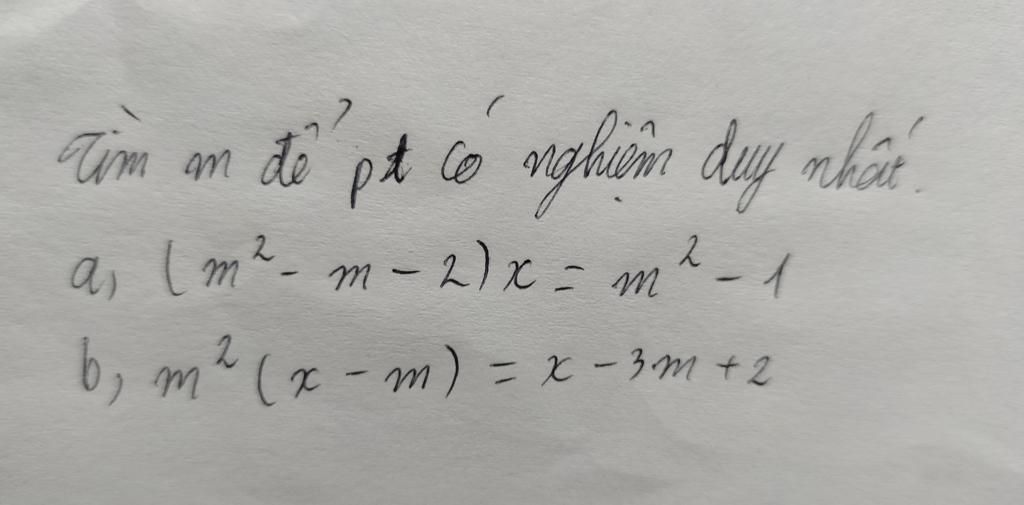 Tìm m để pt có nghiệm duy nhất.
a, (m² - m - 2)x = m² - 1
b, m² (x - m) = x - 3m + 2